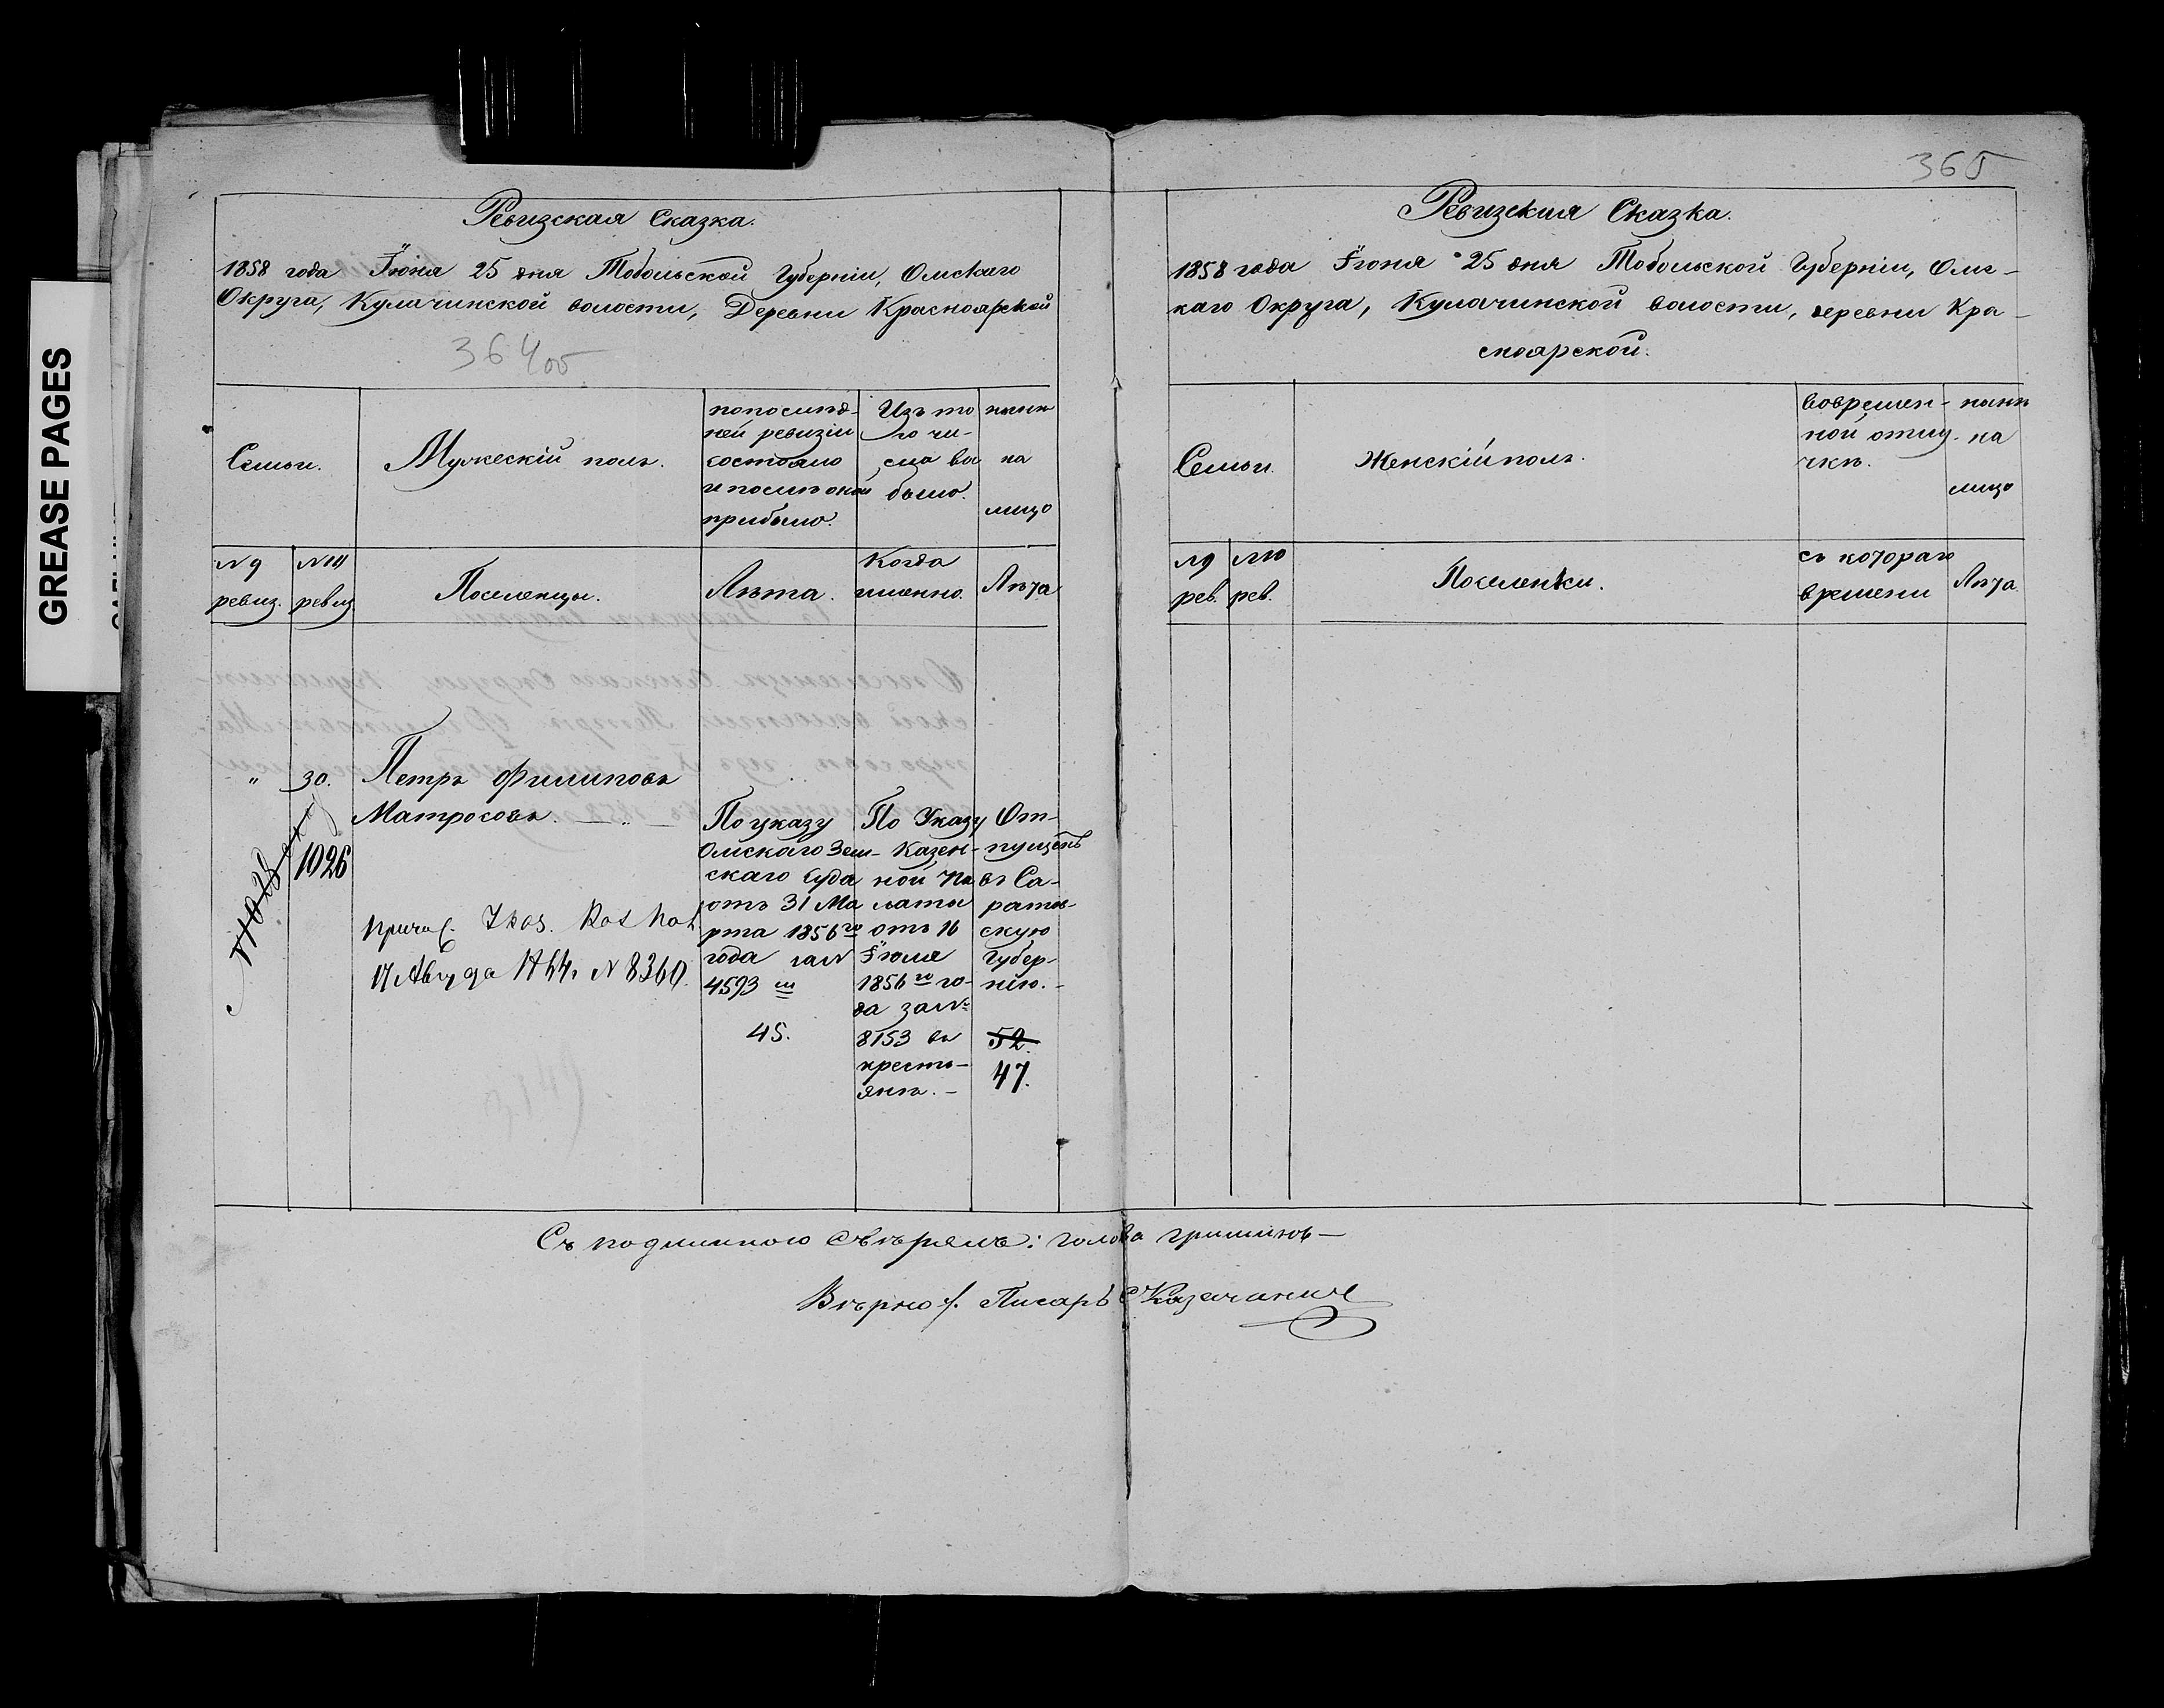 GREASE PAGES
365
Ревизская Сказка.
1858 года Іюня 25 дня Тобольской Губерніи, Омскаго
Округа, Кулачинской волости, Деревни Красноярской
364 об
Семьи.
Мужескій полъ.
попослѣд-
ней ревизіи
состояло
и послѣ оной
прибыло.
Изъ то
го чи-
сла вы
было.
нынѣ
на
лицо
№ 9
ревиз.
№ 10
ревиз
Поселенцы.
Лѣта.
Когда
именно.
Лѣта
" 30. Петръ Филиповъ
Матросовъ.
1026
17 Августа 1864 № 8360.
По указу
Омскаго Зем-
скаго Суда
отъ 31 Ма
рта 1856го
года за№
4593 м
45.
По Указу
Казен-
ной Па
латы
отъ 16
Іюля
1856го го-
да за№
8153 въ
кресть-
яне. -
От-
пущенъ
въ Са-
ратов-
скую
Губер-
нію. -
52.
47.
Ревизская Сказка.
1858 года Іюня 25 дня Тобольской Губерніи, Омс-
каго Округа, Кулачинской волости, деревни Кра-
сноярской.
Семьи.
Женскій полъ.
вовремен-
ной отлу-
чкѣ.
нынѣ
на
лицо
№9
рев.
№10
рев.
Поселенки.
съ котораго
времени
Лѣта.
Съ подлиннымъ свѣрялъ: голова Гришинъ-
Вѣрно: Писарь